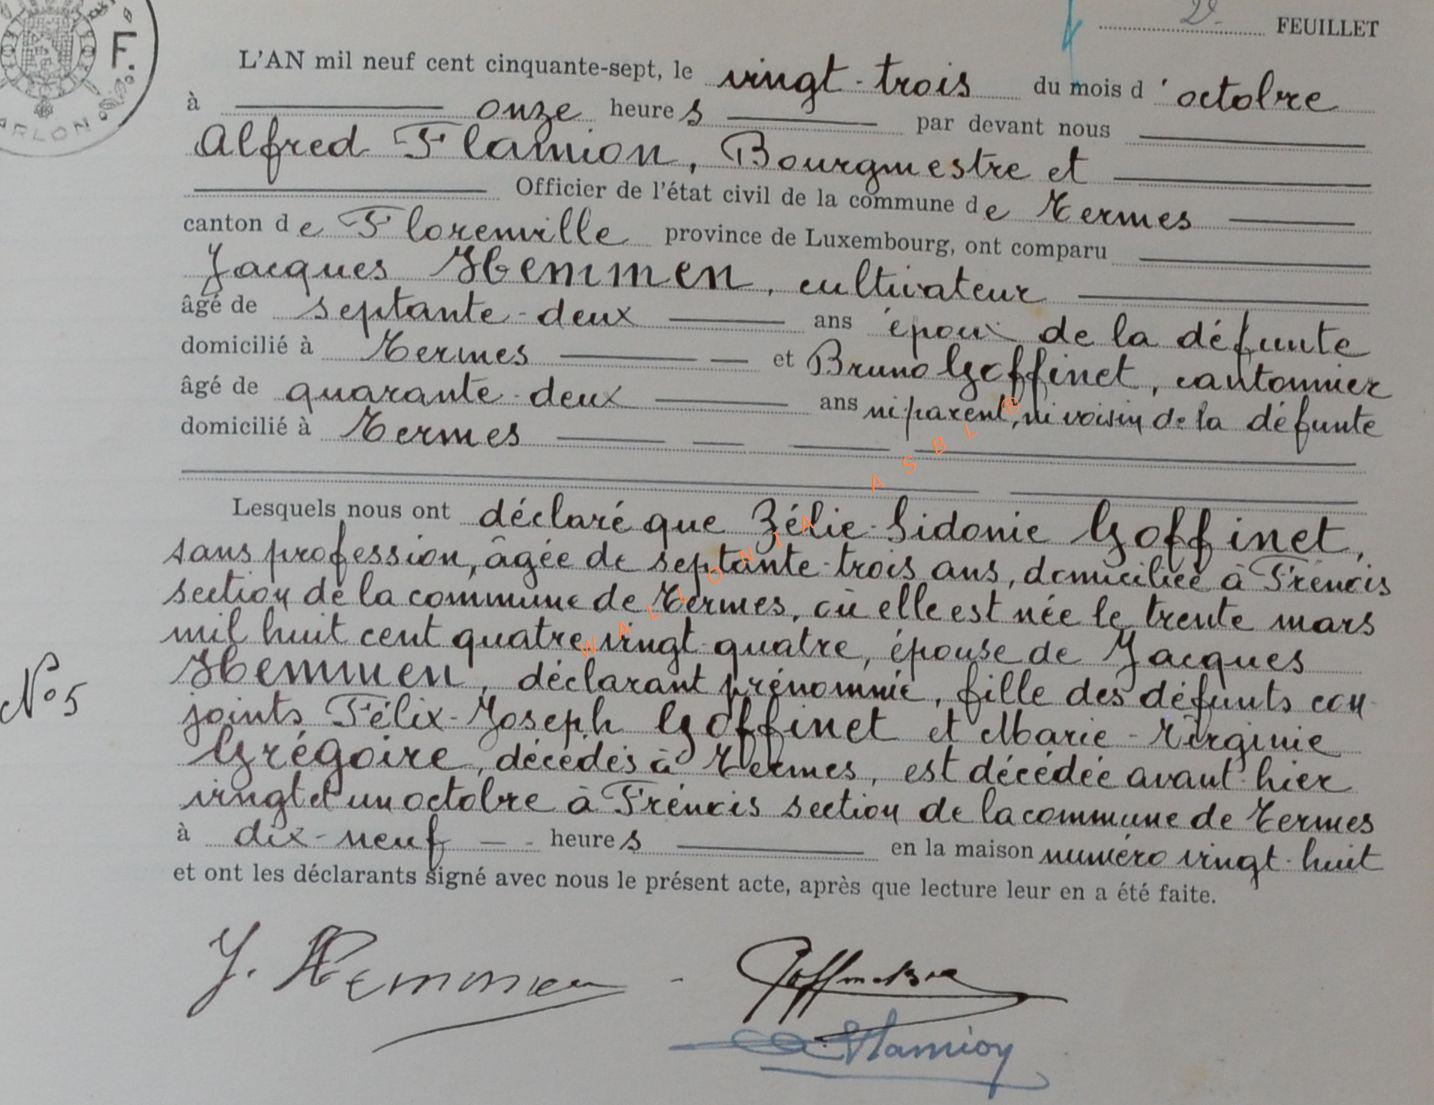 2e FEUILLET
F.
ARLON
L'AN mil neuf cent cinquante-sept, le vingt-trois du mois d'octobre
à onze heures par devant nous
Alfred Flamion, Bourgmestre et
Officier de l'état civil de la commune de Termes
canton de Florenville province de Luxembourg, ont comparu
Jacques Hemmen, cultivateur
âgé de septante-deux ans époux de la défunte
domicilié à Termes et Bruno Goffinet, cantonnier
âgé de quarante-deux ans ni parent, ni voisin de la défunte
domicilié à Termes
Lesquels nous ont déclaré que Zélie-Sidonie Goffinet,
sans profession, âgée de septante-trois ans, domiciliée à Frénois
section de la commune de Termes, où elle est née le trente mars
mil huit cent quatre vingt-quatre, épouse de Jacques
Hemmen, déclarant prénommé, fille des défunts con-
N°5
joints Félix-Joseph Goffinet et Marie-Virginie
Grégoire, décédés à Termes, est décédée avant-hier
vingt et un octobre à Frénois section de la commune de Termes
à dix-neuf heures en la maison numéro vingt-huit
et ont les déclarants signé avec nous le présent acte, après que lecture leur en a été faite.
J. Hemmen - Goffinet
Flamion
WALLONIA ASBL ®